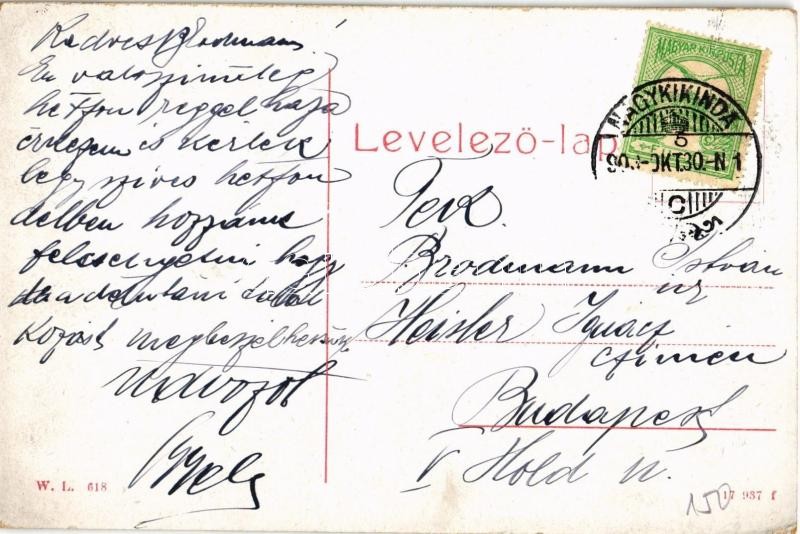 Kedves Brodmann!
Én valószinüleg
hétfőn reggel haza
érkezem és kérlek
légy szives hétfőn
délben hozzánk
felcsengetni hogy
a délutáni
megbeszélhessük
Üdvözöl
Béla
Levelező-lap
MAGYAR KIR. POSTA
NAGYKIKINDA
OKT.30.-N1
C
Tek.
Brodmann István
úr
Heisler Ignácz
czimén
Budapest
V Hold u.
W. L. 618
150
17 937 f